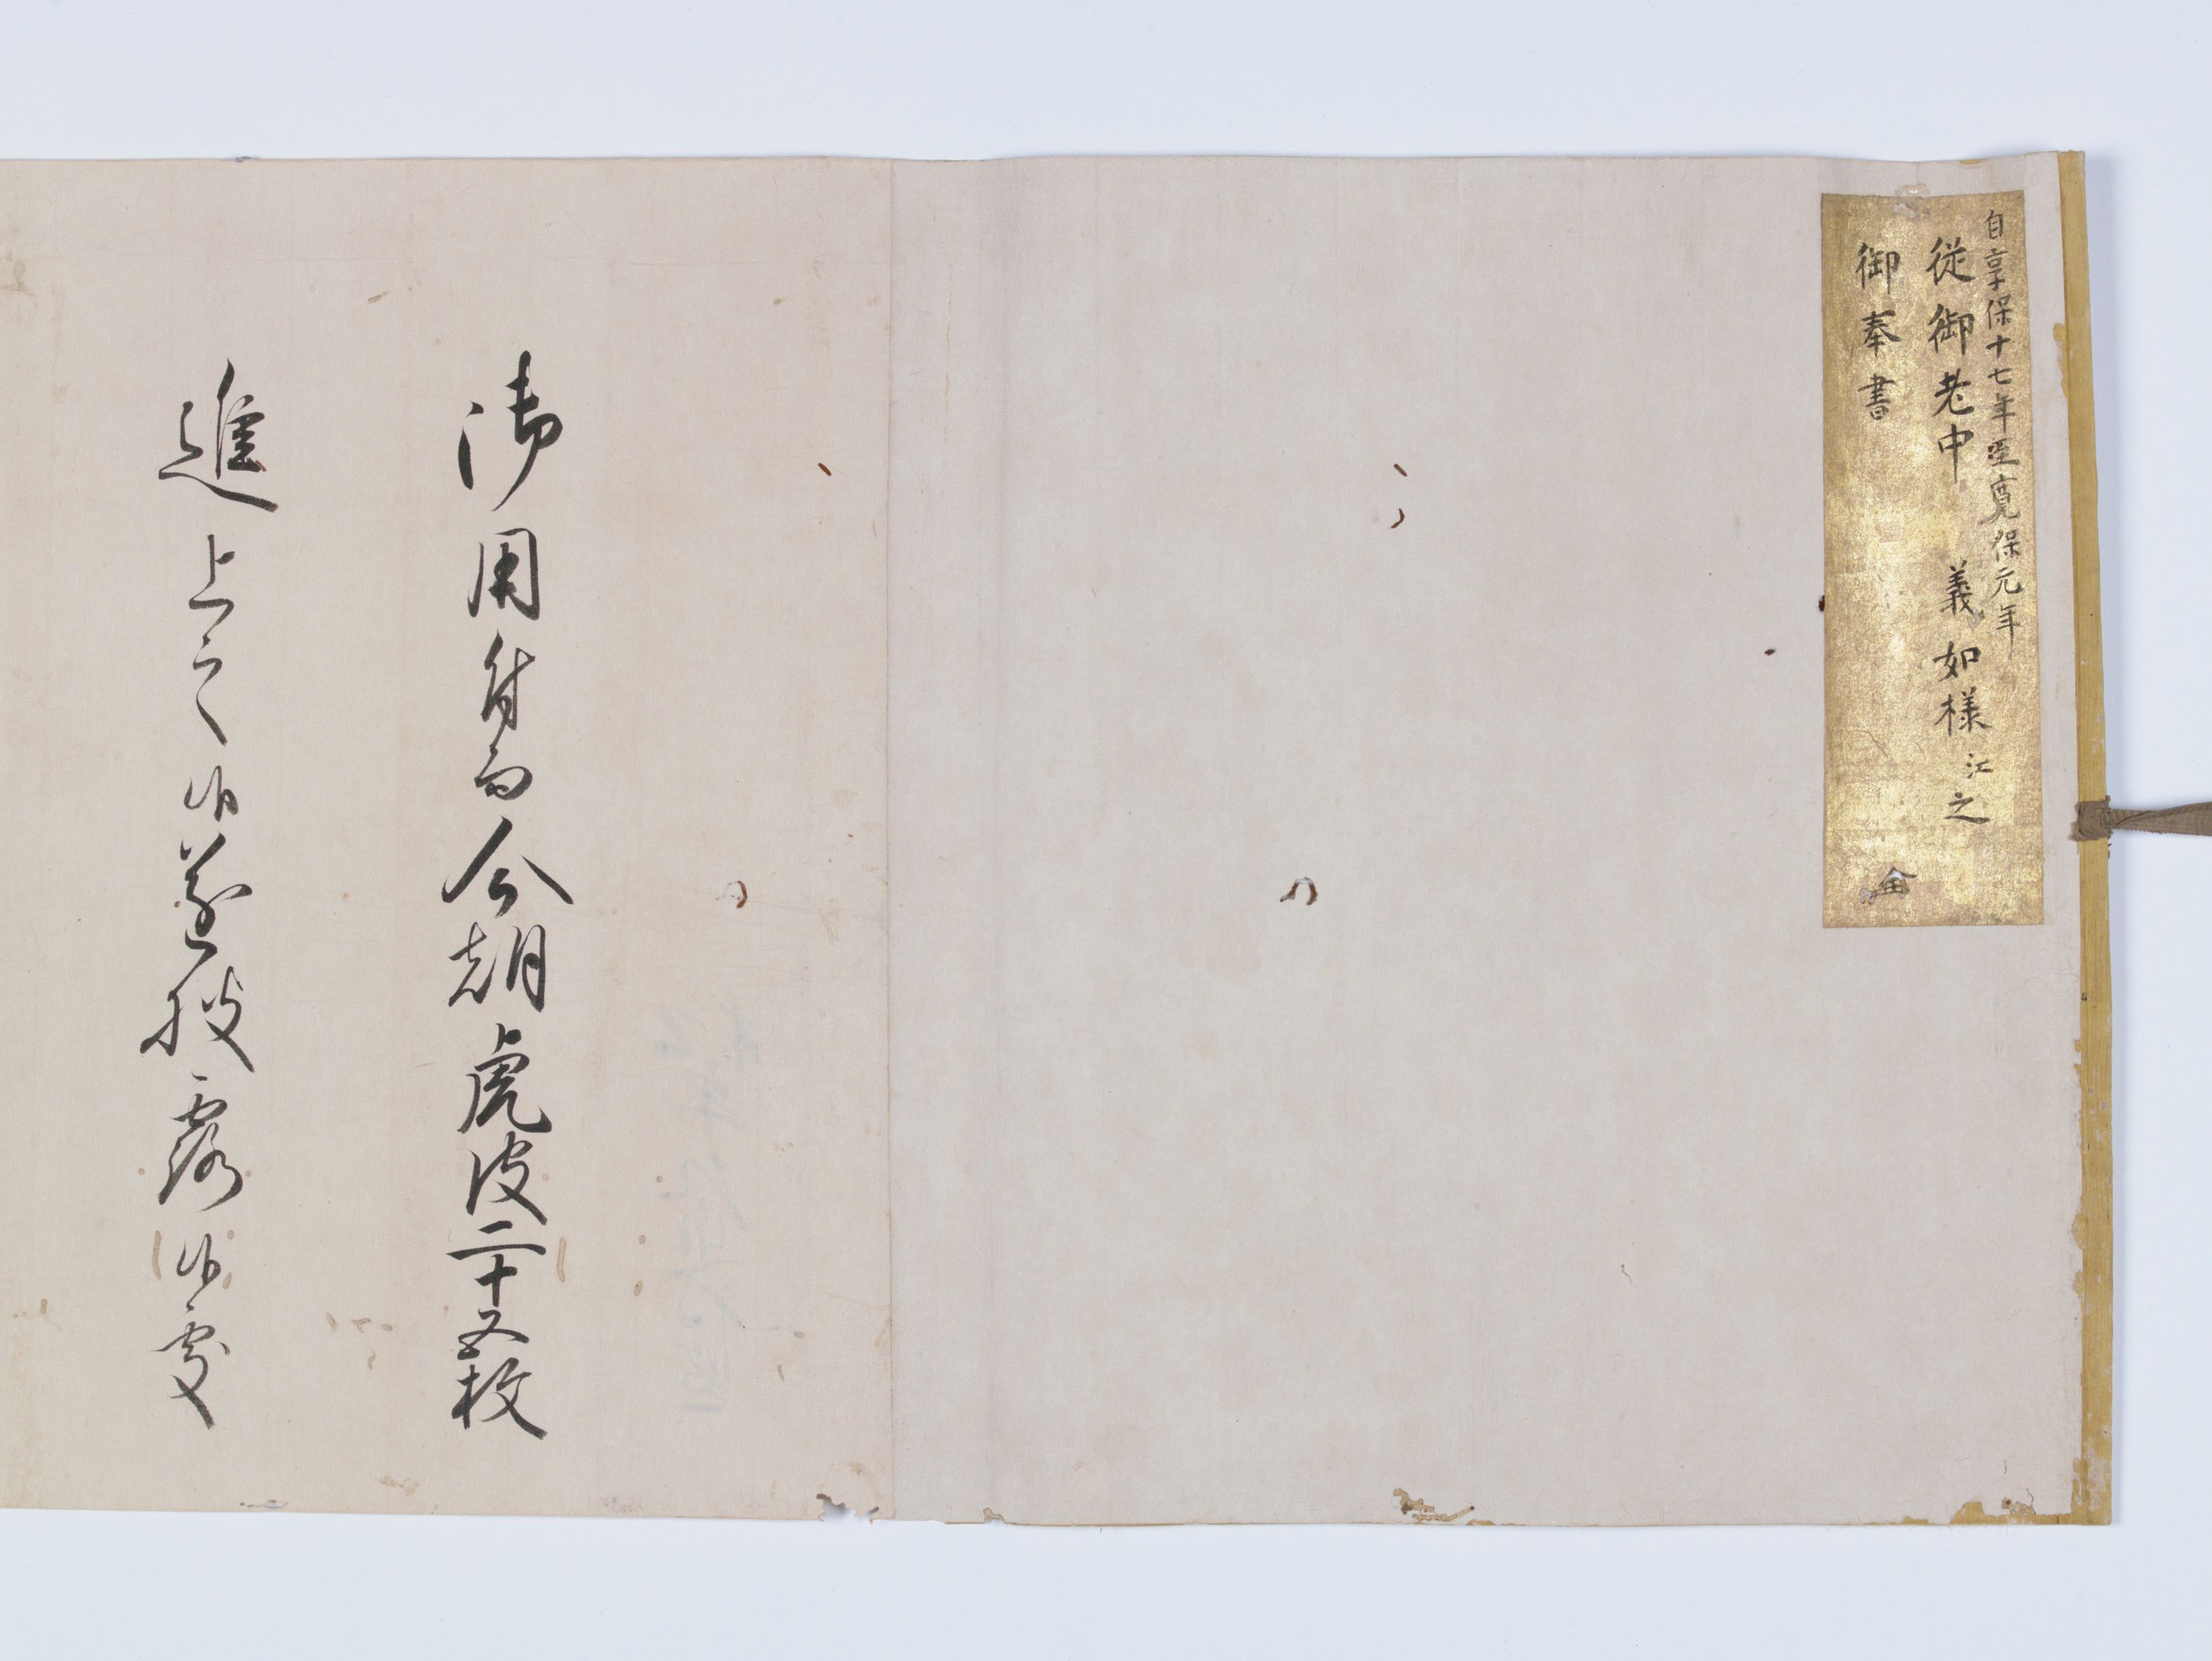 自享保十七年至寛保元年
従御老中 義如様江之
御奉書
御用ニ付而今朝虎皮二十五枚
進上之候遂披露候処